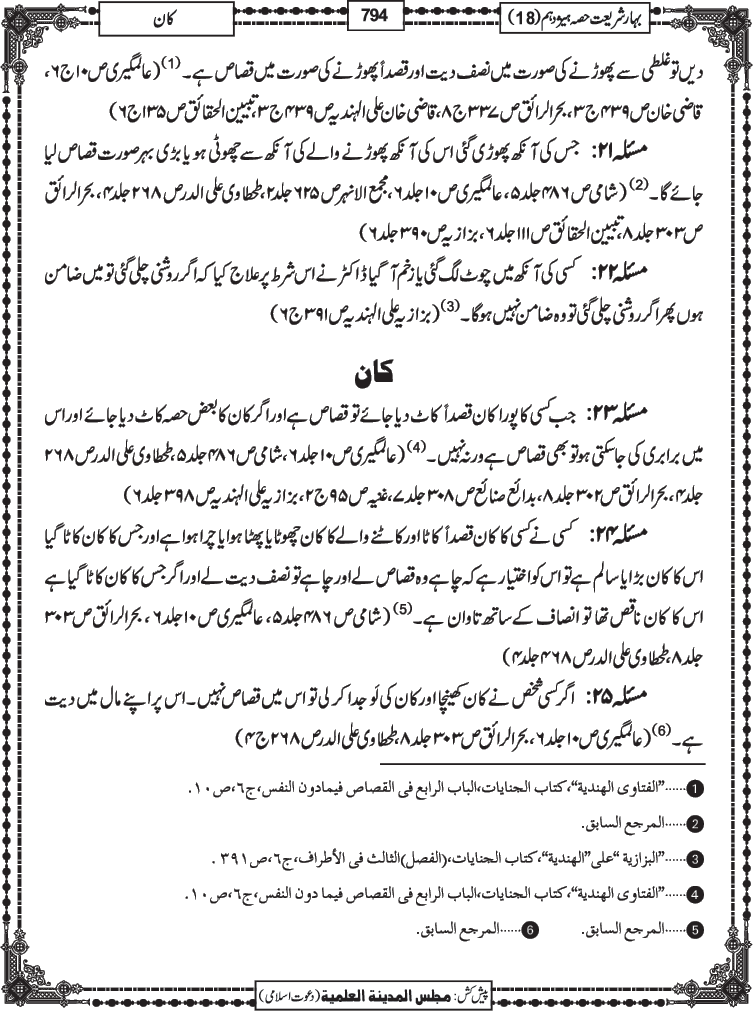 بہارِ شریعت حصہ ہیژدہم (18)
794
کان
دیں تو غلطی سے پھوڑنے کی صورت میں نصف دیت اور قصداً پھوڑنے کی صورت میں قصاص ہے۔(1) (عالمگیری ص۱۰ج۶،
قاضی خان ص۴۳۹ج۳، بحرالرائق ص۳۳۷ج۸، قاضی خان علی الہندیہ ص۴۳۹ج۳، تبیین الحقائق ص۱۳۵ج۶)
مسئلہ ۲۱: جس کی آنکھ پھوڑی گئی اس کی آنکھ پھوڑنے والے کی آنکھ سے چھوٹی ہو یا بڑی بہر صورت قصاص لیا
جائے گا۔(2) (شامی ص۴۸۶ جلد۵، عالمگیری ص۱۰ جلد۶، مجمع الانہر ص۶۲۵ جلد۲، طحطاوی علی الدر ص۲۶۸ جلد۴، بحرالرائق
ص۳۰۳ جلد۸، تبیین الحقائق ص۱۱۱ جلد۶، بزازیہ ص۳۹۰ جلد۶)
مسئلہ ۲۲: کسی کی آنکھ میں چوٹ لگ گئی یا زخم آ گیا ڈاکٹر نے اس شرط پر علاج کیا کہ اگر روشنی چلی گئی تو میں ضامن
ہوں پھر اگر روشنی چلی گئی تو وہ ضامن نہیں ہوگا۔(3) (بزازیہ علی الہندیہ ص۳۹۱ج۶)
کان
مسئلہ ۲۳: جب کسی کا پورا کان قصداً کاٹ دیا جائے تو قصاص ہے اور اگر کان کا بعض حصہ کاٹ دیا جائے اور اس
میں برابری کی جاسکتی ہو تو بھی قصاص ہے ورنہ نہیں۔(4) (عالمگیری ص۱۰ جلد۶، شامی ص۴۸۶ جلد۵، طحطاوی علی الدر ص۲۶۸
جلد۴، بحرالرائق ص۳۰۲ جلد۸، بدائع صنائع ص۳۰۸ جلد۷، غنیہ ص۹۵ج۲، بزازیہ علی الہندیہ ص۳۹۸ جلد۶)
مسئلہ ۲۴: کسی نے کسی کا کان قصداً کاٹا اور کاٹنے والے کا کان چھوٹا یا پھٹا ہوا یا چرا ہوا ہے اور جس کا کان کاٹا گیا
اس کا کان بڑا یا سالم ہے تو اس کو اختیار ہے کہ چاہے وہ قصاص لے اور چاہے تو نصف دیت لے اور اگر جس کا کان کاٹا گیا ہے
اس کا کان ناقص تھا تو انصاف کے ساتھ تاوان ہے۔(5) (شامی ص۴۸۶ جلد۵، عالمگیری ص۱۰ جلد۶، بحرالرائق ص۳۰۳
جلد۸، طحطاوی علی الدر ص۴۶۸ جلد۴)
مسئلہ ۲۵: اگر کسی شخص نے کان کھینچا اور کان کی لَو جدا کر لی تو اس میں قصاص نہیں۔ اس پر اپنے مال میں دیت
ہے۔(6) (عالمگیری ص۱۰ جلد۶، بحرالرائق ص۳۰۳ جلد۸، طحطاوی علی الدر ص۲۶۸ج۴)
1 ......"الفتاوی الھندیة"، کتاب الجنایات، الباب الرابع فی القصاص فیمادون النفس، ج٦، ص١٠.
2 ......المرجع السابق.
3 ......"البزازیة" علی "الھندیة"، کتاب الجنایات، (الفصل) الثالث فی الأطراف، ج٦، ص٣٩١.
4 ......"الفتاوی الھندیة"، کتاب الجنایات، الباب الرابع فی القصاص فیما دون النفس، ج٦، ص١٠.
5 ......المرجع السابق. 6 ......المرجع السابق.
پیش کش: مجلس المدینة العلمیة (دعوت اسلامی)